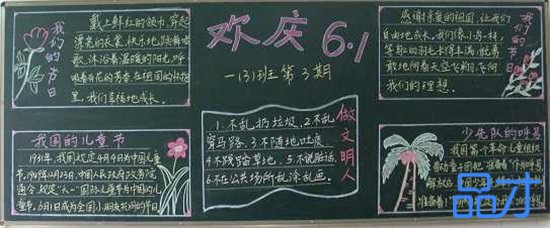 欢庆6.1
一(3)班 第3期
我们的节日
戴上鲜红的领巾,穿起
漂亮的衣裳,快乐地跳舞唱
歌,沐浴着温暖的阳光,呼
吸着花的芳香在祖国的怀抱
里,我们幸福地成长。
我们的节日
感谢亲爱的祖国,让我们
自由地成长,我们像小鸟一样,
等到的羽毛长丰满,就勇
敢地向着天空飞翔,飞向
我们的理想。
做文明人
1.不乱扔垃圾.2.不乱
穿马路.3.不随地吐痰.
4.不践踏草地.5.不说脏话.
6.不在公共场所乱涂乱画.
我国的儿童节
1931年,我国规定4月4日为中国儿童
节.1949年12月23日,中国人民政府政务院
通令规定"六一"国际儿童节为中国的儿童
节.6月1日成为全国小朋友共同的节日
少先队的呼号
我国第一个革命儿童组织
准备着!
品才